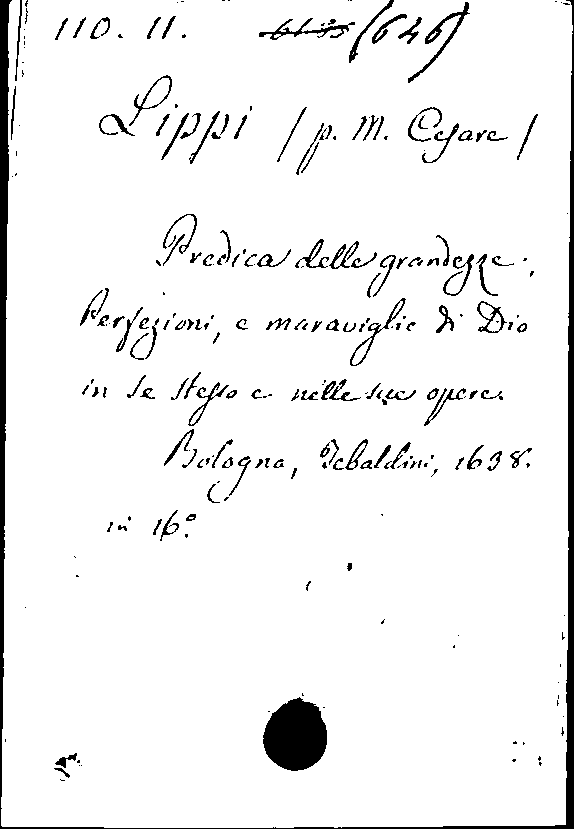 110. 11. (646)
Lippi / p. M. Cesare /
Predica delle grandezze,
Perfezioni, e maraviglie di Dio
in se stesso e nelle sue opere.
Bologna, Tebaldini, 1638.
in 16.º